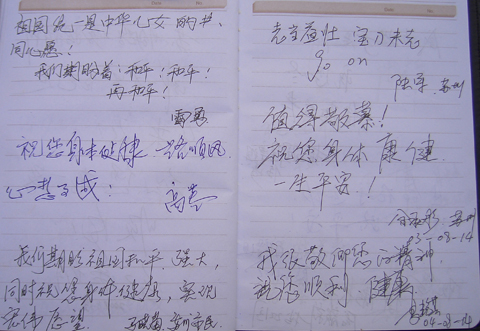 祖国统一是中华儿女的共
同心愿!
我们期盼着:和平!和平!
再和平!
祝您身体健康 一路顺风
心想事成:
我们期盼祖国和平、强大,
同时祝您身体健康,实现
宏伟愿望
苏州市民
老当益壮 宝刀未老
go on
陆军 苏州
值得敬慕!
祝您身体康健
一生平安!
苏州
03-14
我很敬仰您的精神
祝您顺利 健康
04-03-14